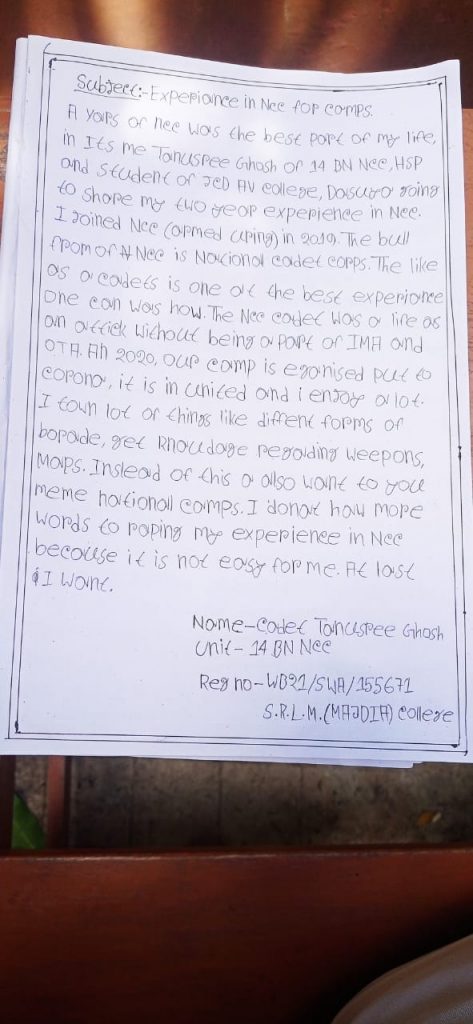 Subject:-Experiance in Ncc for comps.
A yars of ncc was the best part of my life,
in Its me Tanusree Ghosh of 14 BN Ncc, HSP
and student of JCD AV college, Dasuya going
to share my two year experience in Ncc.
I Joined Ncc (armed uping) in 2019. The bull
from of Ncc is National cadet corps. The like
as a cadets is one at the best experiance
one can was how. The Ncc cadet was a life as
an attick without being a part of IMA and
OTA. An 2020, our camp is eganised put to
corona, it is in united and i enjoy a lot.
I town lot of things like diffent forms of
borade, get Rhoudage regarding weepons,
Maps. Instead of this a also want to you
meme nationall camps. I donat how more
words to raping my experience in Ncc
because it is not easy for me. At last
I want.
Name-Cadet Tanusree Ghosh
Unit- 14 BN Ncc
Reg no-WB21/SWA/155671
S.R.L.M.(MAJDIA) college